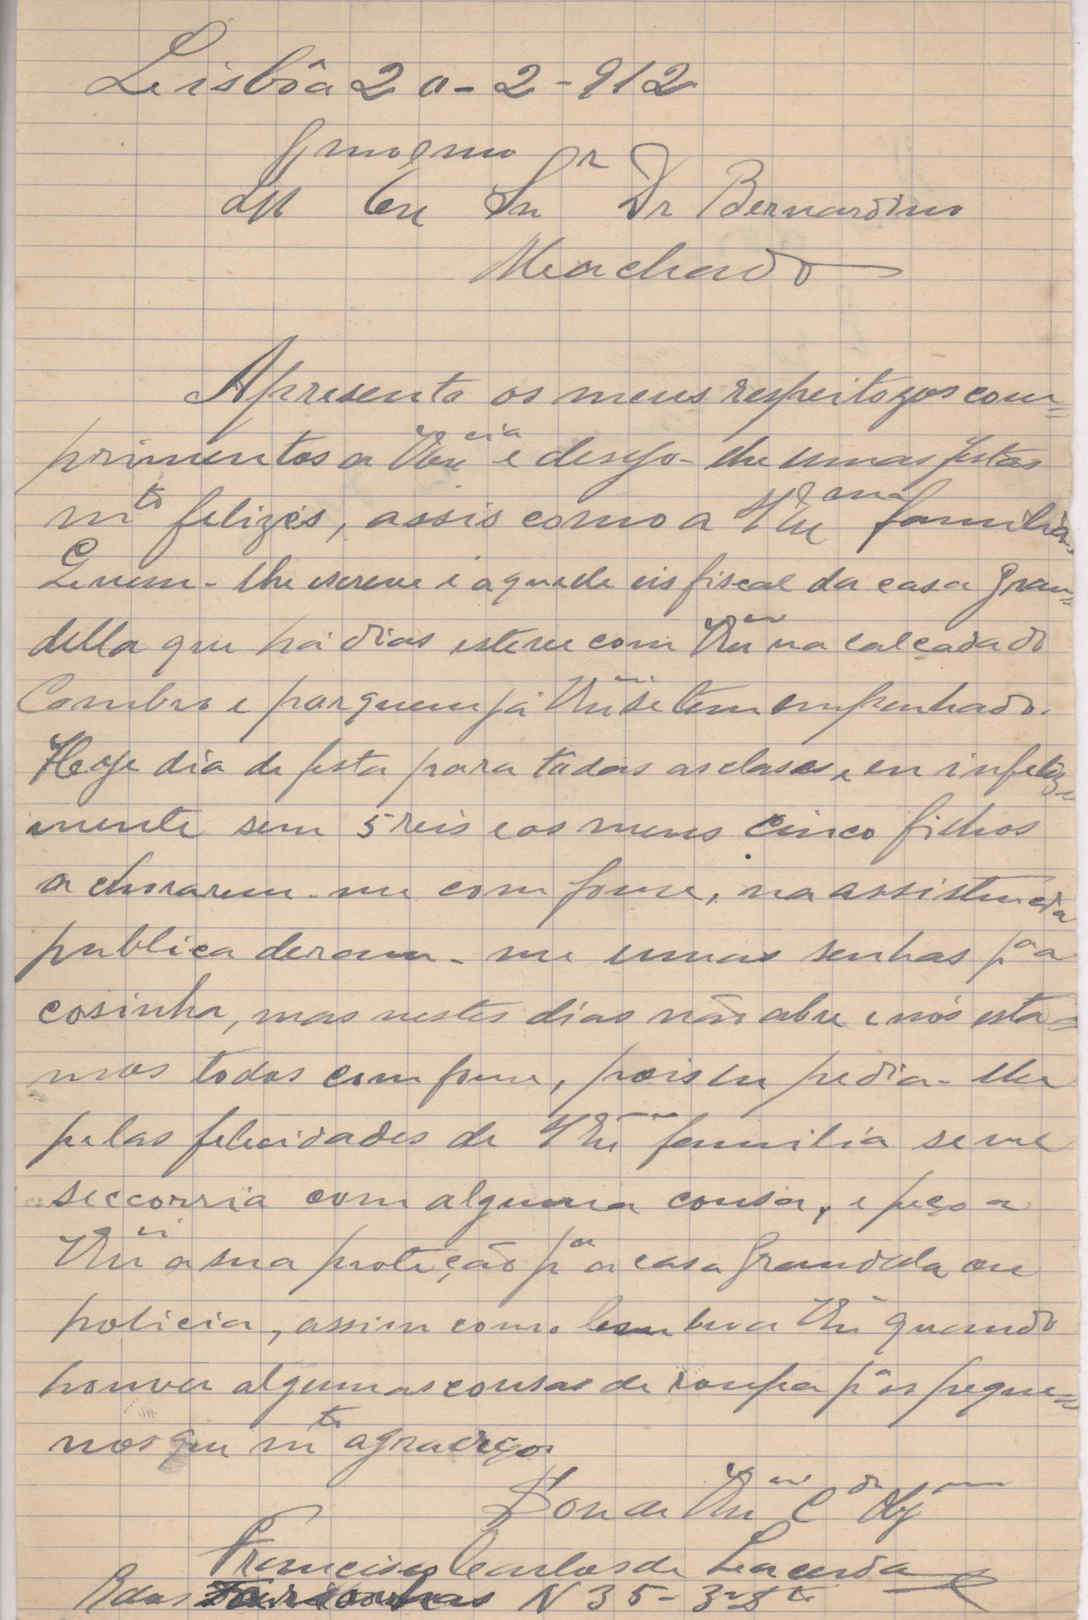 Lisbôa 20-2-912
Exmo Snr Dr Bernardino
Machado
Apresento os meus respeitozos com=
primentos a V Ex cia e desejo-lhe umas festas
mto felizes, assis como a V Ex ma familia.
Quem-lhe escreve é aquele eis fiscal da casa Gran=
della que há dias esteve com V Ex na calçada do
Combro e por quem já V Ex se tem empenhado.
Hoje dia de festa para todas as clases, eu infeliz=
mente sem 5 reis e os meus cinco filhos
a chorarem-me com fome, na assistencia
publica deram-me umas senhas pa a
cosinha, mas nestes dias não abre e nós esta=
mos todos com fome, pois eu pedia-lhe
pelas felicidades de V Ex ma familia se me
seccorria com alguma cousa, e peço a
V Ex a sua proteção pa a casa Grandela ou
policia, assim como lembra V Ex quando
houver algumas cousas de roupa pa os peque=
nos que mto agradeço
Sou de V Ex Cdo Obg
Francisco Carlos de Lacerda
R das N 35-3º